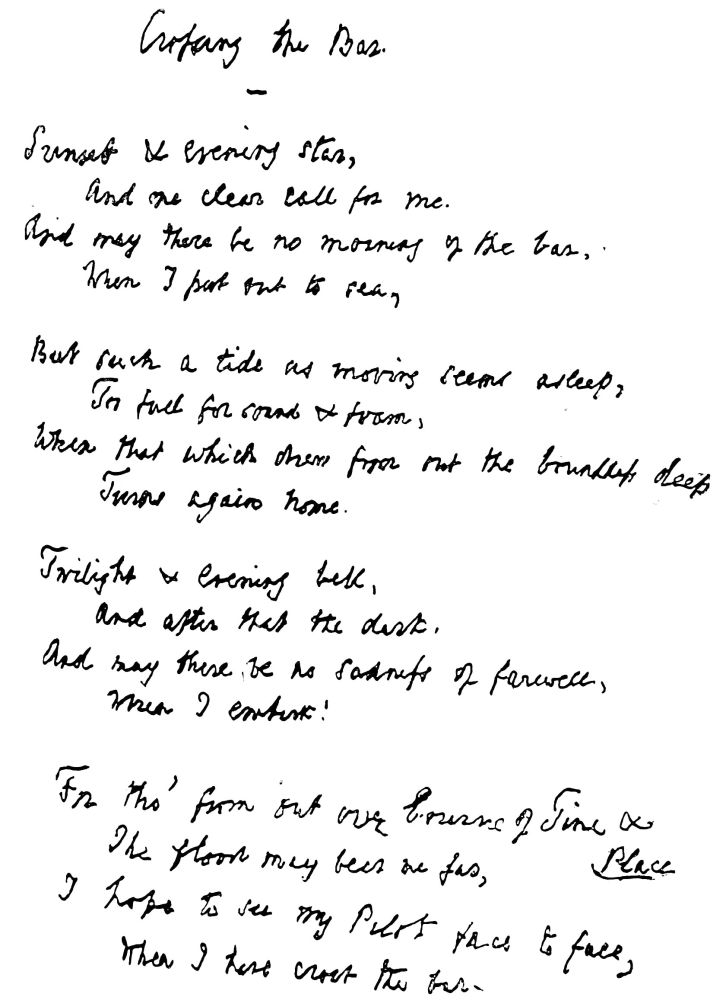 Crossing the Bar.
Sunset & evening star,
And one clear call for me.
And may there be no moaning of the bar,
When I put out to sea,
But such a tide as moving seems asleep,
Too full for sound & foam,
When that which drew from out the boundless deep
Turns again home.
Twilight & evening bell,
And after that the dark.
And may there be no sadness of farewell,
When I embark!
For tho' from out our Bourne of Time &
Place
The flood may bear me far,
I hope to see my Pilot face to face,
When I have crost the bar.